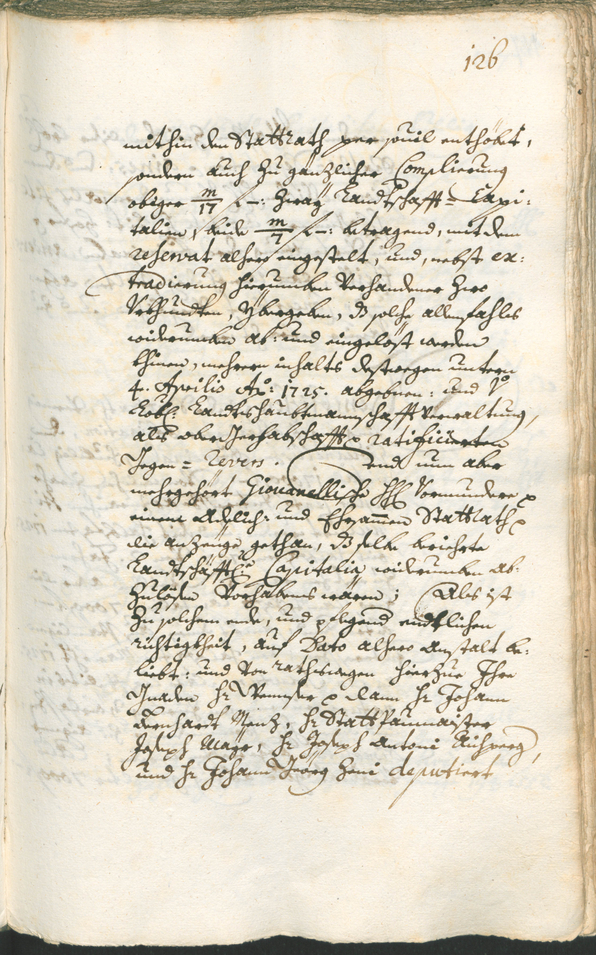 126
mithin den Stattrath per souil enthöbt,
sondern auch zu gänzlicher Complierung
obiger m/17 f –: zway Landtschafft= Capi:
talien, beide m/7 f –: betragend, mit dem
reservat alhero eingestelt, und, nebst ex:
tradierung hierumben verhandener zwo
Urkhundten, ybergeben, dß solche allenfahls
widerumben ab: und eingelöst werden
khinen, mehrern inhalts destwegen untern
4. Aprilis Ao: 1725. abgebnen: und von
Löbl. Landtshaubtmannschafft Verwaltung,
als ober Gerhabschafft ratificierten
Gegen= Revers. end nun aber
mehrgehört Giouanellische HH Vormundere
einem Adelich: und Ehrsamen Stattrath
die anzeuge gethan, dß selbe berichte
Landtschäfftle Capitalia widerumben ab:
zulösen Vorhabens wären; Als ist
zu solchem ende, und pflegend endtlichen
richtigkheit, auf Dato alhero anstalt be:
liebt: und von rathswegen hierzue Ihro
Gnaden Hr Wenser dann Hr Johann
Bernhardt Menz, Hr Statt Paumaister
Joseph Mayr, Hr Joseph Antoni Aichperg,
und Hr Johann Georg Zeni deputiert